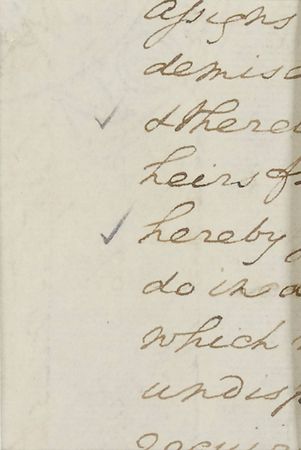 assigns
demise
& there
heirs &
hereby
do in
which
undisp